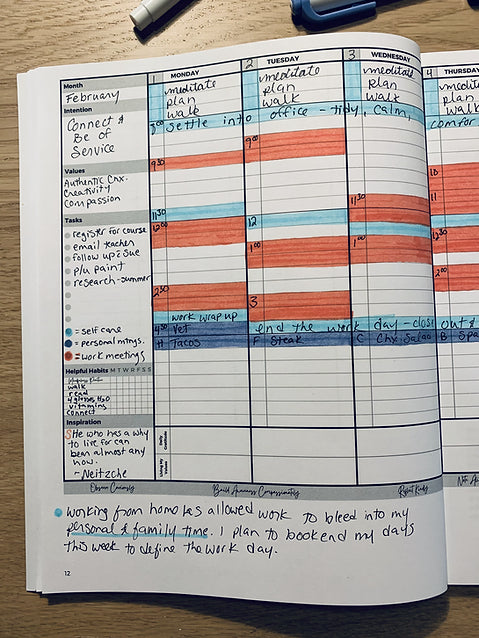 Month
February
Intention
Connect &
Be of
Service
Values
Authentic Cnx.
Creativity
Compassion
Tasks
register for course
email teacher
follow up: Sue
p/u paint
research-summer
= self care
= personal mtngs.
= work meetings
Helpful Habits M T W R F S S
walk
read
vitamins
connect
Inspiration
He who has a why
to live for can
bear almost any
how.
~ Neitzche
1 MONDAY
meditate
plan
walk
2 TUESDAY
meditate
plan
walk
3 WEDNESDAY
meditate
plan
walk
4 THURSDAY
meditate
plan
walk
settle into office - tidy, calm, comfor
9:30
11:30
12:00
2:30
work wrap up
4:30 Vet
H Tacos
9:00
12
1:00
3
end the work day - close out &
F Steak
11:30
1:00
C Chx. Salad
10
11
12:30
2:00
B Spa
Daily
Gratitude
Living My
Values
Observe Curiously
Build Awareness Compassionately
Repeat Kindly
working from home has allowed work to bleed into my
personal & family time. I plan to bookend my days
this week to define the work day.
12